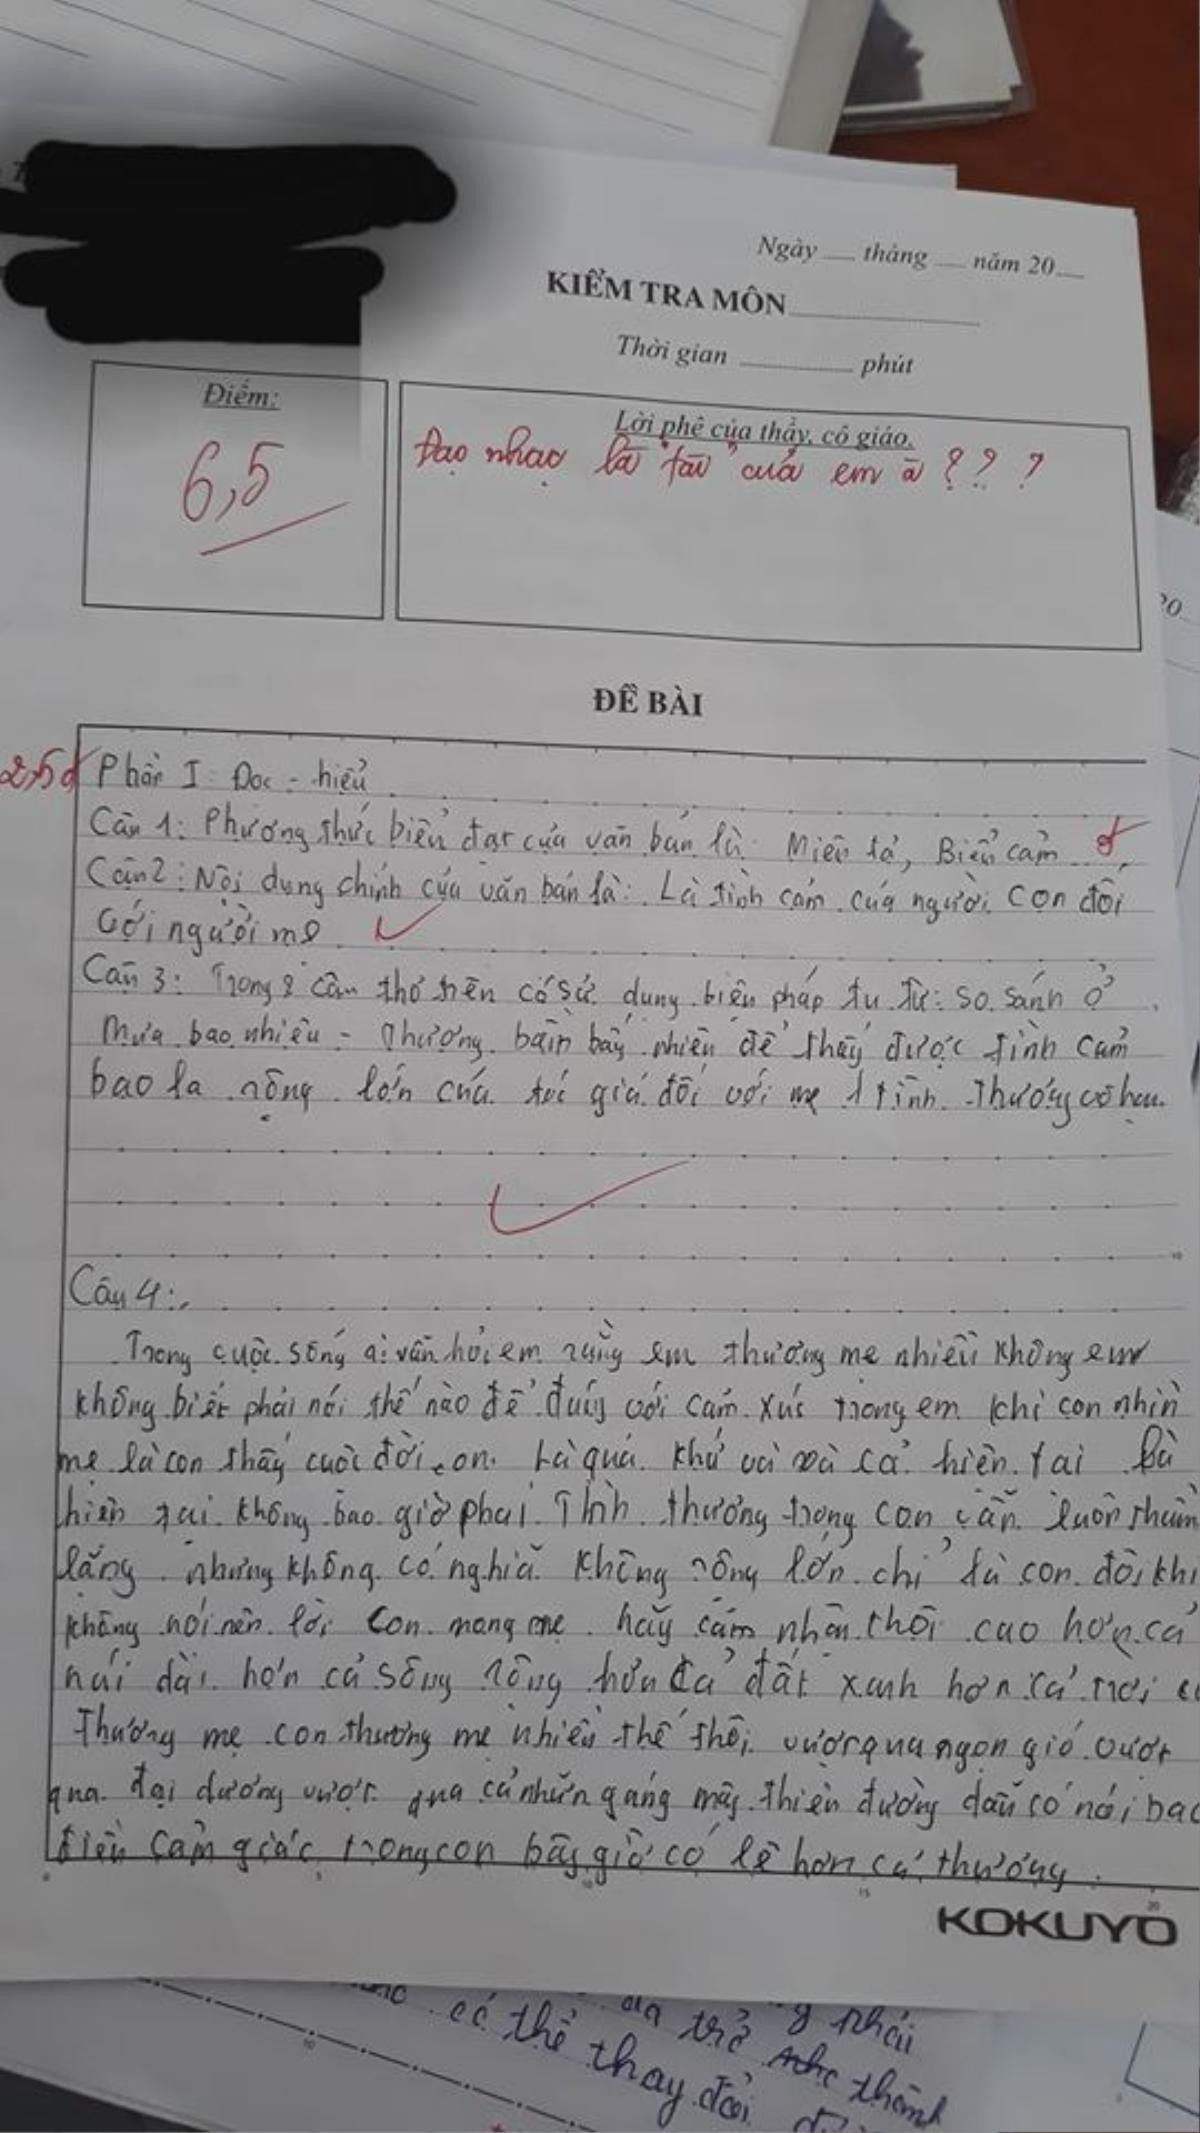 Ngày ... tháng ... năm 20...
KIỂM TRA MÔN
Thời gian ... phút
Điểm:
6,5
Lời phê của thầy, cô giáo.
Đạo nhạc là "tài" của em à ? ? ?
20
ĐỀ BÀI
2,5đ
Phần I: Đọc - hiểu
Câu 1: Phương thức biểu đạt của văn bản là: Miêu tả, Biểu cảm
Câu 2: Nội dung chính của văn bản là: Là tình cảm của người con đối
với người mẹ
Câu 3: Trong 2 câu thơ trên có sử dụng biện pháp tu từ: so sánh ở
Mưa bao nhiêu - thương bầm bấy nhiêu để thấy được tình cảm
bao la rộng lớn của tác giả đối với mẹ 1 tình thương vô hạn.
Câu 4:
Trong cuộc sống ai vẫn hỏi em rằng em thương mẹ nhiều không em
không biết phải nói thế nào để đúng với cảm xúc trong em khi con nhìn
mẹ là con thấy cuộc đời con. Là quá khứ và và cả hiện tại là
hiện tại không bao giờ phai. Tình thương trong con vẫn luôn thầm
lặng nhưng không có nghĩa không rộng lớn chỉ là con đôi khi
không nói nên lời con mong mẹ hãy cảm nhận thôi cao hơn cả
núi dài hơn cả sông rộng hơn cả đất xanh hơn cả trời
thương mẹ con thương mẹ nhiều thế thôi vượt qua ngọn gió vượt
qua đại dương vượt qua cả những gáng mây thiên đường dẫu có nói bao
điều cảm giác trong con bây giờ có lẽ hơn cả thương.
KOKUYO
có thể thay đổi
đã trở thành
phải